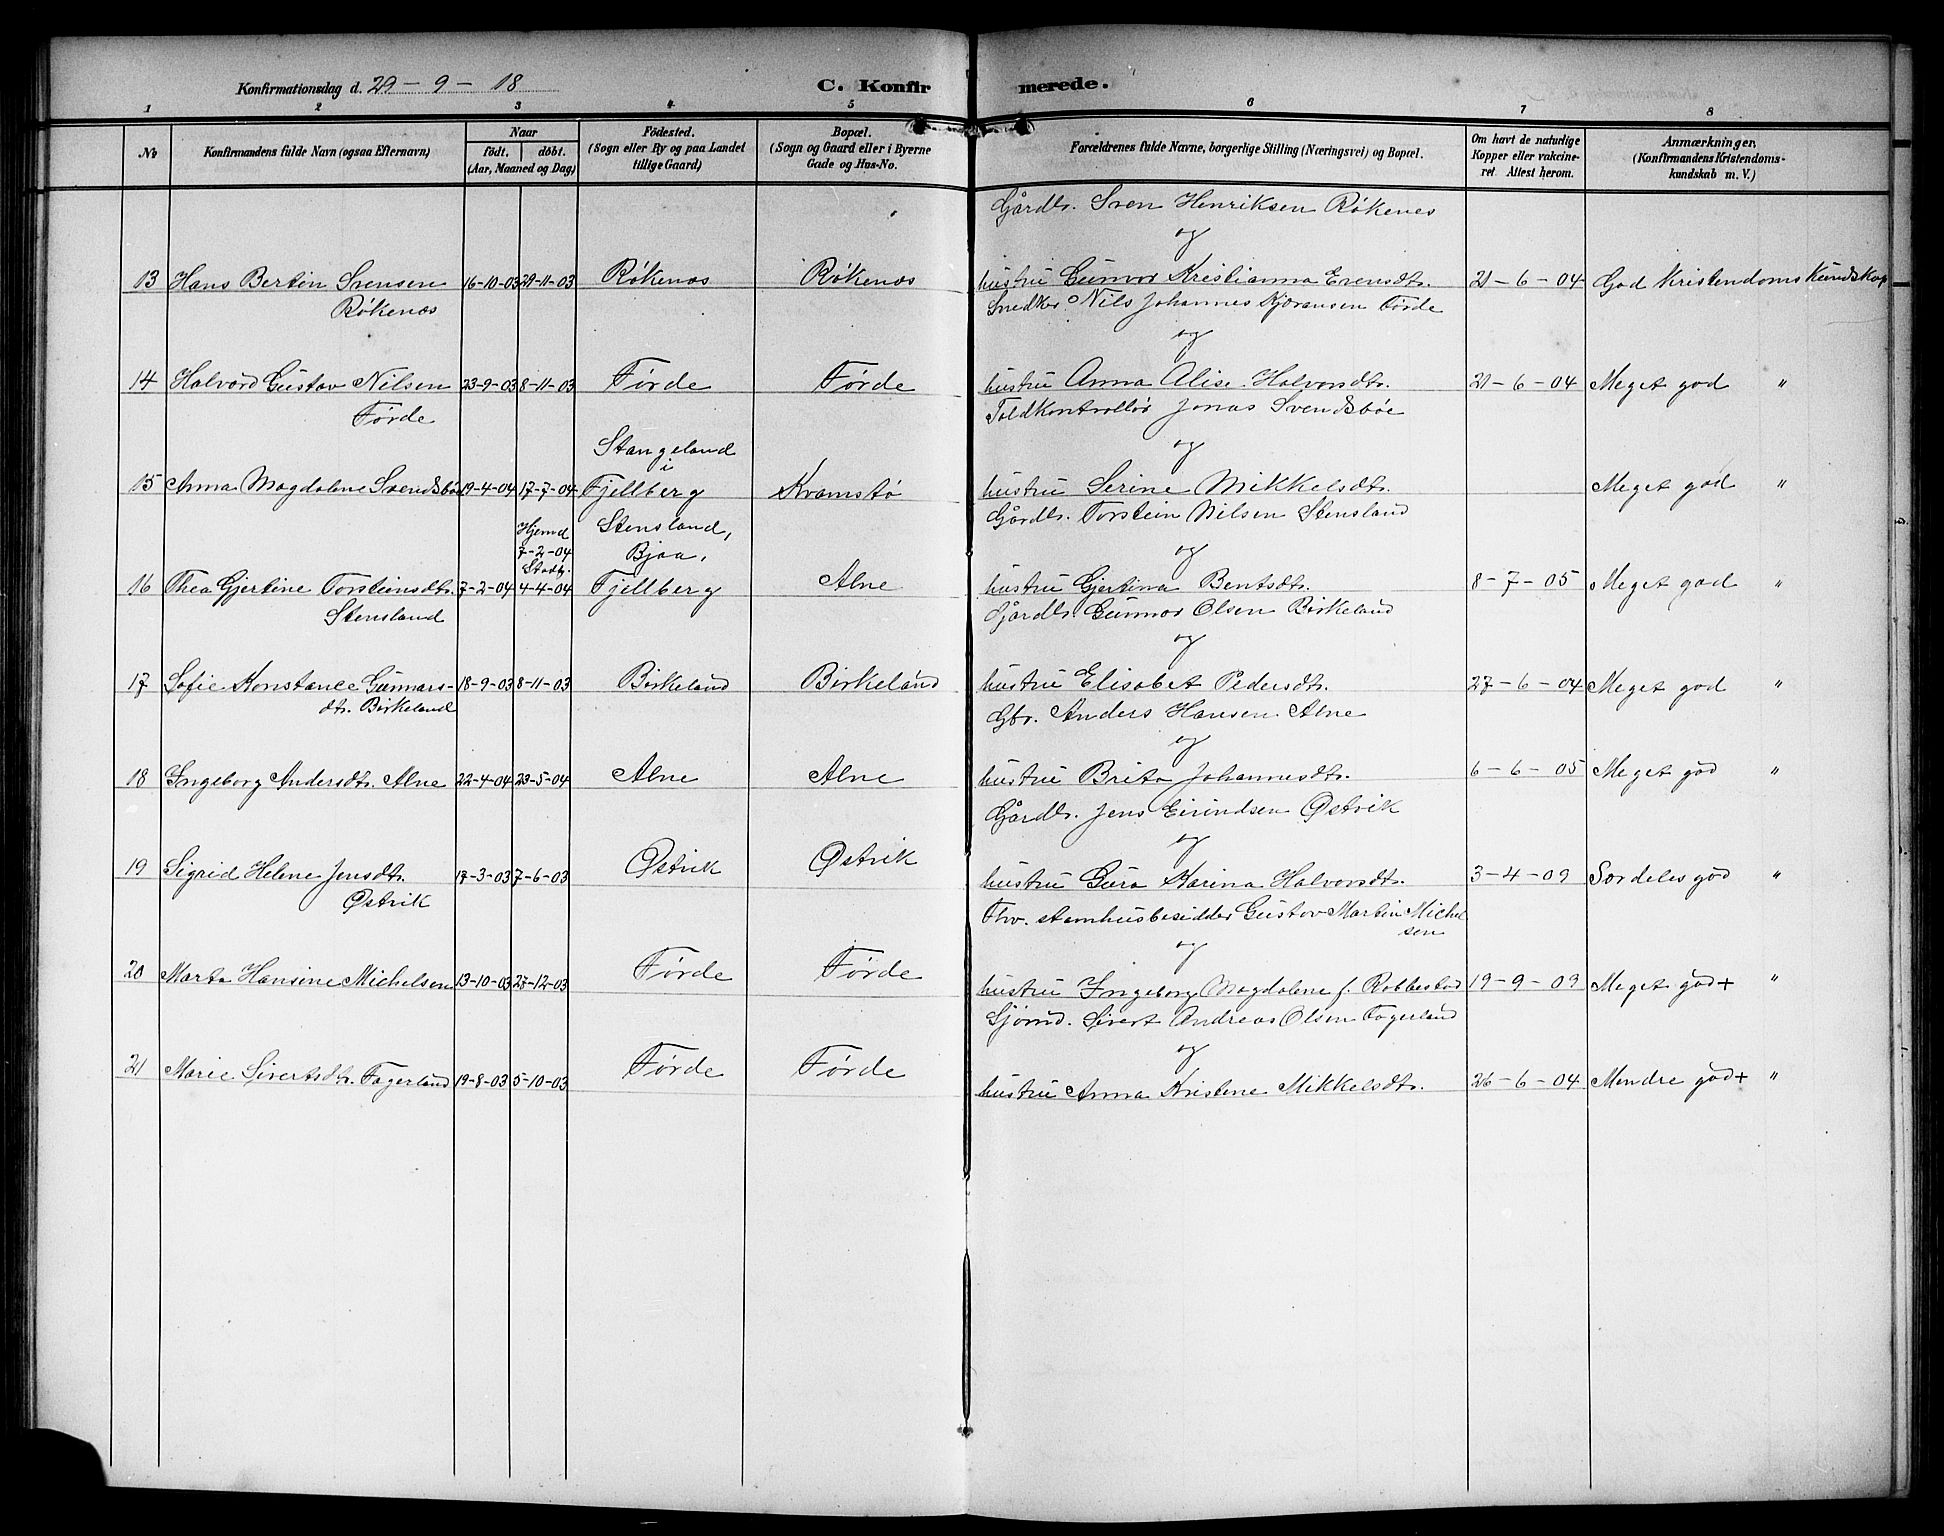 Konfirmationsdag d. 29 - 9 - 18
C. Konfirmerede.
1 2 3 4 5 6 7 8
No
Konfirmandens fulde Navn (ogsaa Efternavn)
Naar
født. døbt.
(Aar, Maaned og Dag)
Födested.
(Sogn eller By og paa Landet
tillige Gaard)
Bopæl.
(Sogn og Gaard eller i Byerne
Gade og Hus-No.
Forældrenes fulde Navne, borgerlige Stilling (Næringsvei) og Bopæl.
Om havt de naturlige
Kopper eller vakcine-
ret. Attest herom.
Anmærkninger,
(Konfirmandens Kristendoms-
kundskab m. V.)
Gårdbr. Sven Henriksen Røkenes
og
13 Hans Bertin Svensen 16-10-03 29-11-03 Røkenæs Røkenæs hustru Gunvor Kristianna Evensdtr. 21-6-04 God Kristendomskundskap
Røkenæs
Snedker Nils Johannes Kjøransen Førde
og
14 Halvord Gustav Nilsen 23-9-03 8-11-03 Førde Førde hustru Anna Alise Halvorsdtr. 21-6-04 Meget god "
Førde
Toldkontrollør Jonas Svendsbøe
og
Stangeland
i
15 Anna Magdalene Svendsbøe 19-4-04 17-7-04 Fjellberg Kvamstø hustru Serine Mikkelsdtr. Meget god "
Gårdbr. Torstein Nilsen Stensland
og
Hjemd
7-2-04
Stadf.
Stensland,
Bjoa,
16 Thea Gjertine Torsteinsdtr. 7-2-04 4-4-04 Fjellberg Alne hustru Gjertina Bentsdtr. 8-7-05 Meget god "
Stensland
Gjårdbr. Gunnar Olsen Birkeland
og
17 Sofie Konstance Gunnars- 18-9-03 8-11-03 Birkeland Birkeland hustru Elisabet Pedersdtr. 27-6-04 Meget god "
dtr. Birkeland
Gbr. Anders Hansen Alne
og
18 Ingeborg Andersdtr. Alne 22-4-04 23-5-04 Alne Alne hustru Brita Johannesdtr. 6-6-05 Meget god "
Gårdbr. Jens Eirindsen Østvik
og
19 Sigrid Helene Jensdtr. 17-3-03 7-6-03 Østvik Østvik hustru Guro Karina Halvorsdtr. 3-4-09 Særdeles god "
Østvik
Fhv. stamhusbesidder Gustav Martin Michel
sen
og
20 Marta Hansine Michelsen 13-10-03 27-12-03 Førde Førde hustru Ingeborg Magdalene f. Robbestad 19-9-09 Meget god+ "
Gjømd. Sivert Andreas Olsen Fagerland
og
21 Marie Sivertsdtr. Fagerland 19-8-03 5-10-03 Førde Førde hustru Anna Kristene Mikkelsdtr. 26-6-04 Mendre god+ "